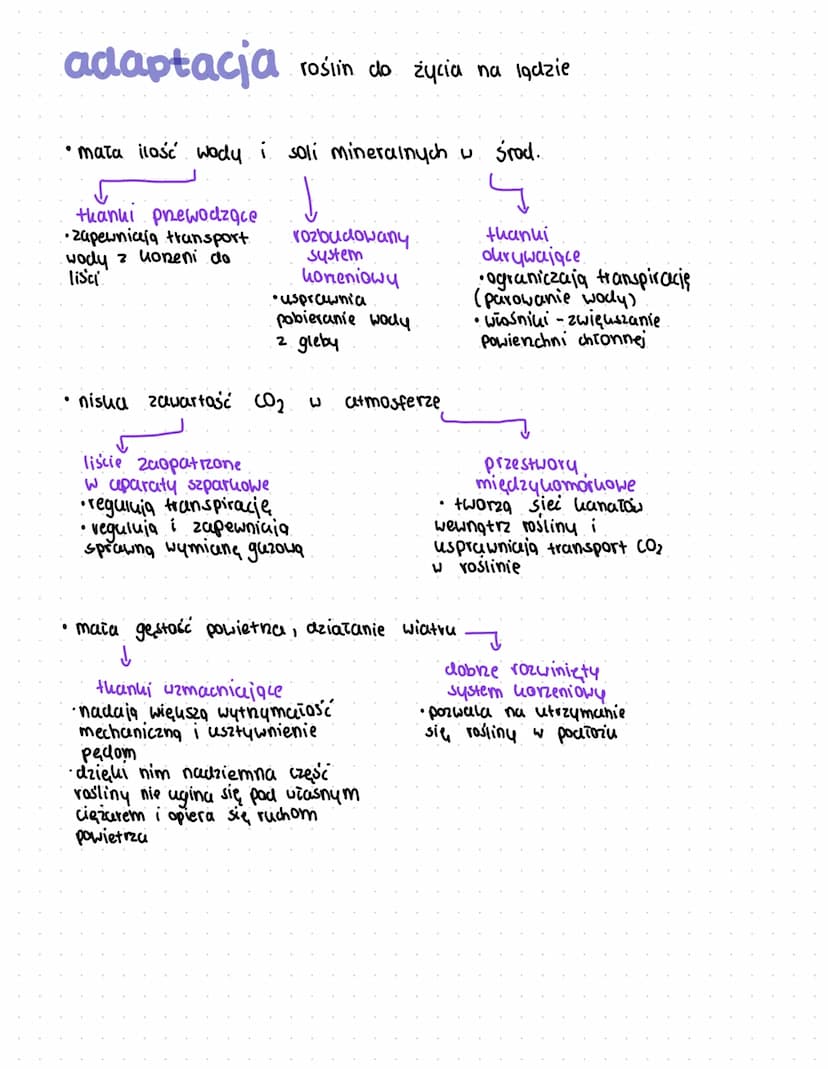 adaptacja roślin do życia na lądzie
• mała ilość wody i soli mineralnych w środ.
tkanki przewodzące
• zapewniają transport
wody z korzeni do
liści
rozbudowany
system
korzeniowy
• usprawnia
pobieranie wody
z gleby
tkanki
okrywające
• ograniczają transpirację
(parowanie wody)
• włośniki - zwiększanie
powierzchni chłonnej
• niska zawartość CO₂ w atmosferze
liście zaopatrzone
w aparaty szparkowe
• regulują transpirację
• regulują i zapewniają
sprawną wymianę gazową
przestwory
międzykomórkowe
• tworzą sieć kanałów
wewnątrz rośliny i
usprawniają transport CO₂
w roślinie
• mała gęstość powietrza, działanie wiatru
tkanki wzmacniające
• nadają większą wytrzymałość
mechaniczną i usztywnienie
pędom
• dzięki nim nadziemna część
rośliny nie ugina się pod własnym
ciężarem i opiera się ruchom
powietrza
dobrze rozwinięty
system korzeniowy
• pozwala na utrzymanie
się rośliny w podłożu